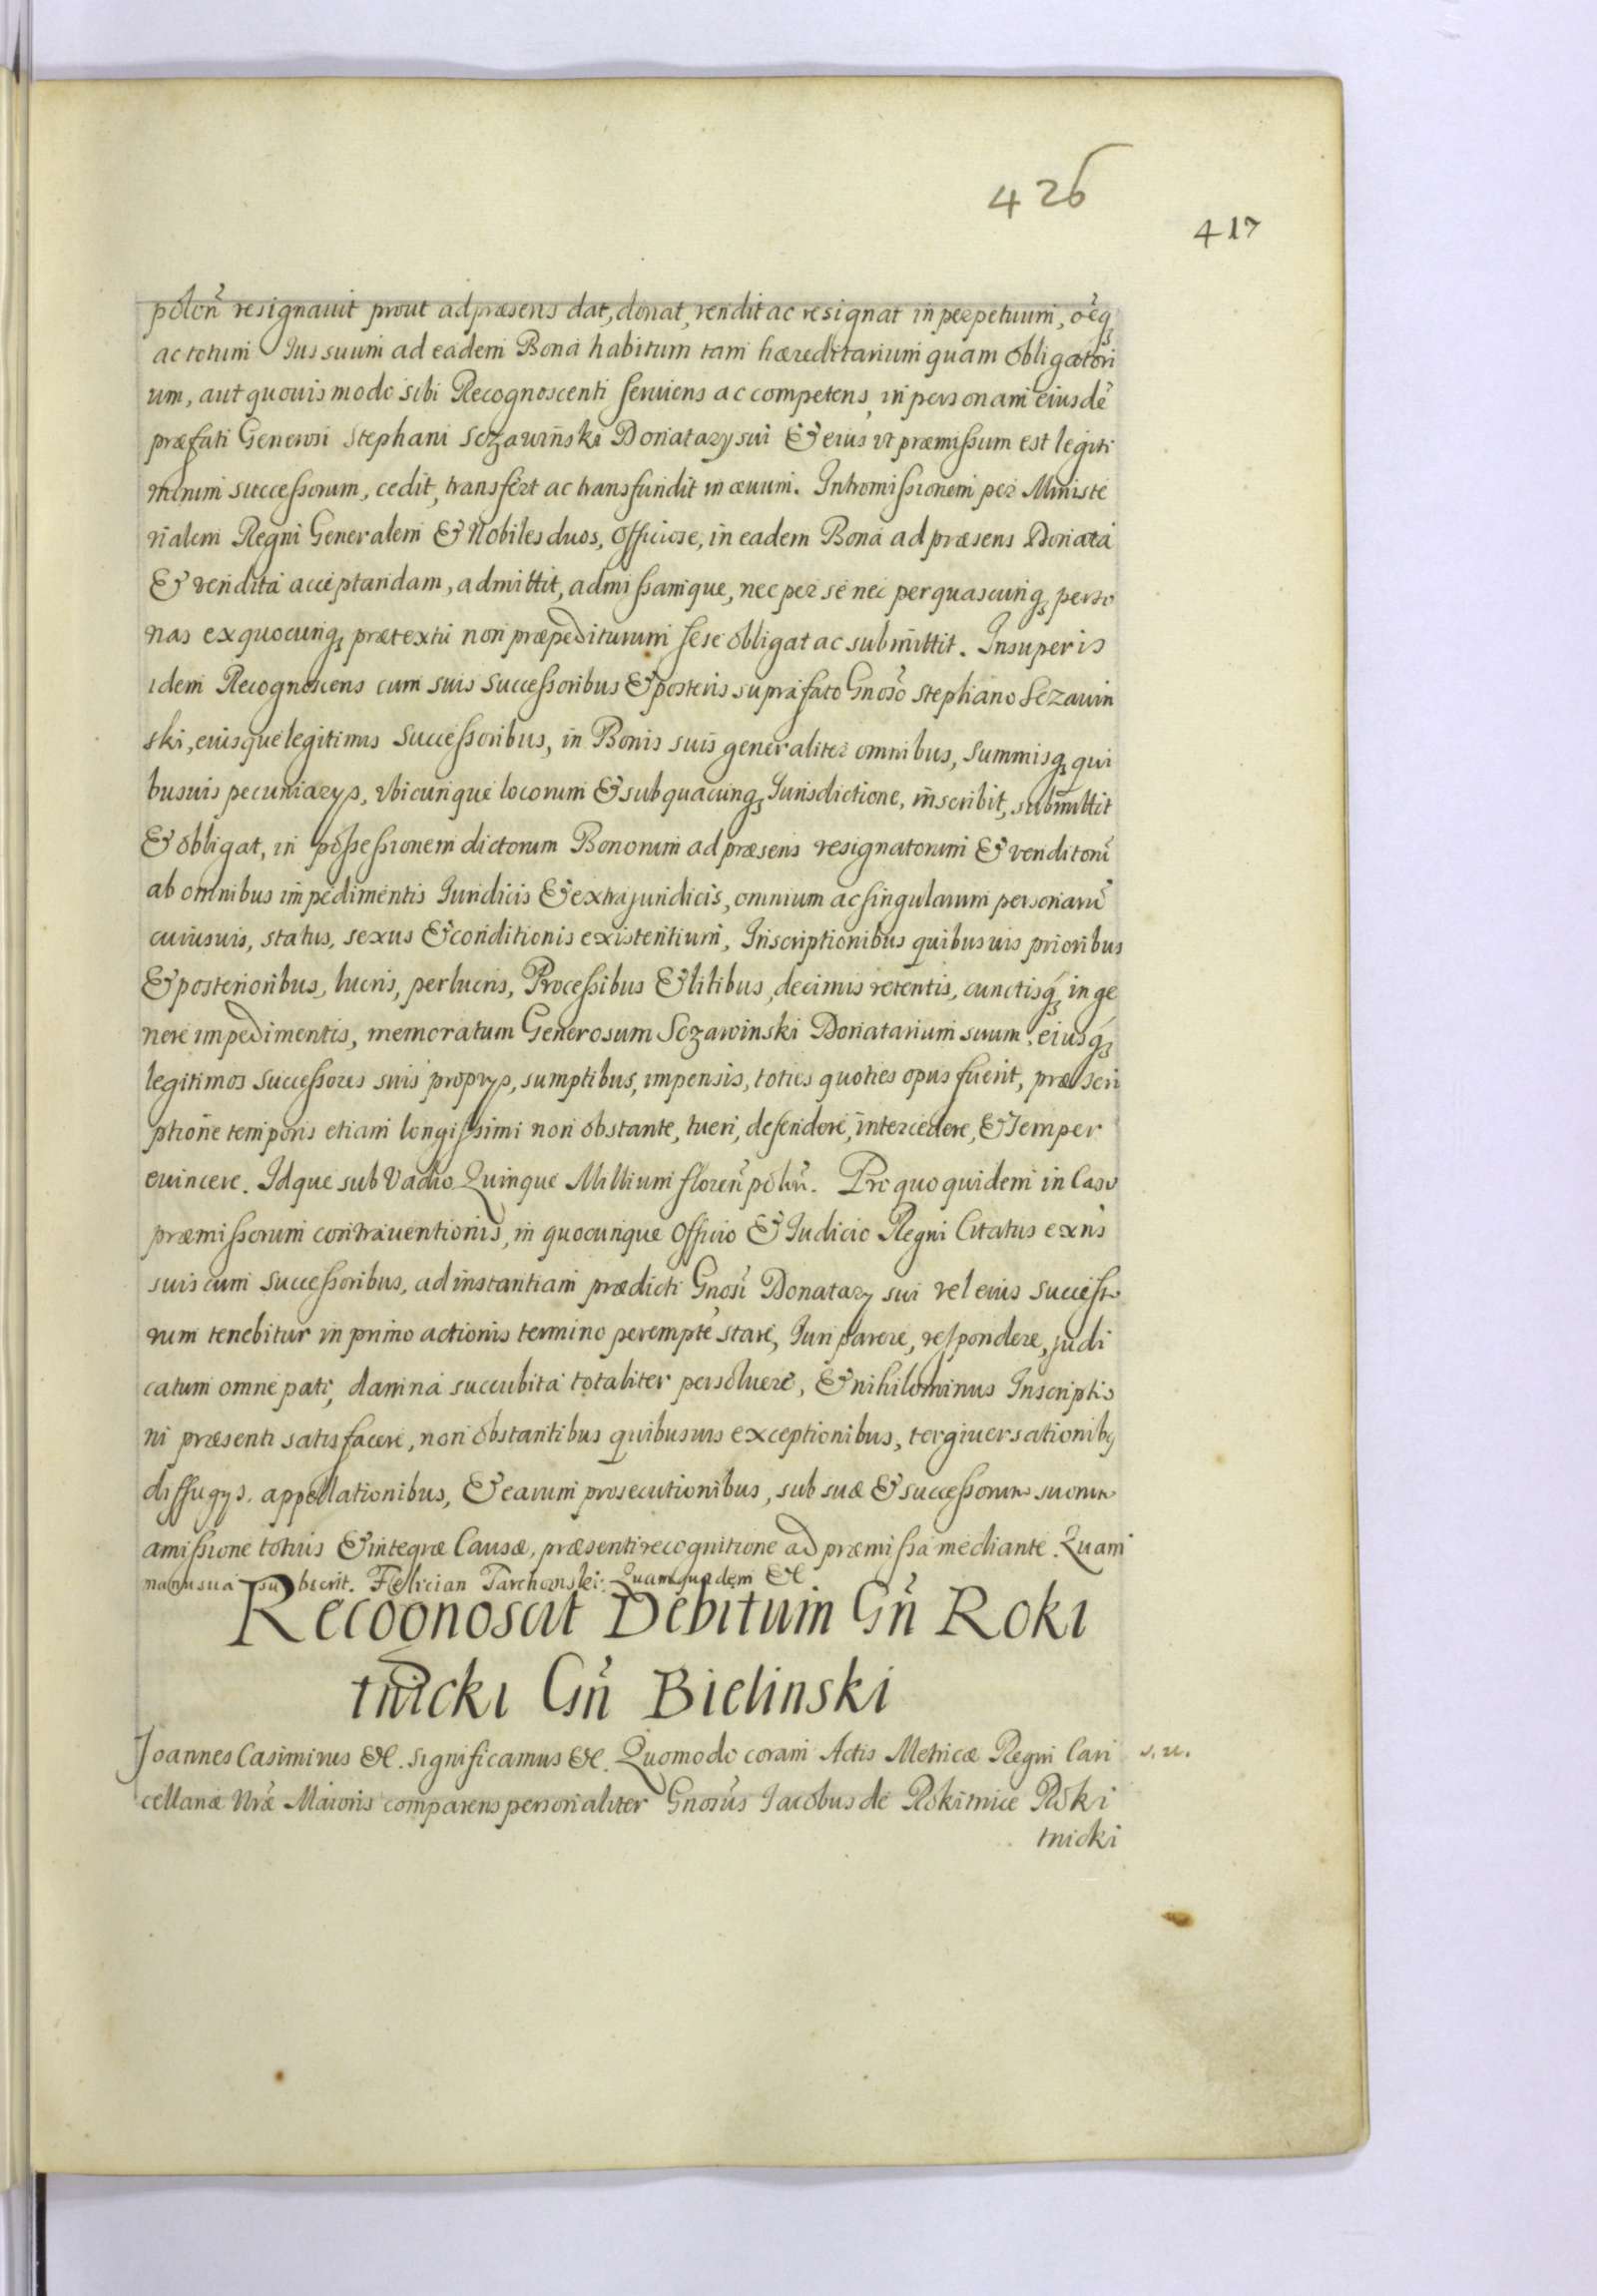 426
417
polon̄ resignauit prout ad præsens dat, donat, vendit ac resignat in perpetuum, oēq
ac totum Ius suum ad eadem Bona habitum tam hæreditarium quam obligatori
um, aut quouis modo sibi Recognoscenti seruiens ac competens, in personam eiusdē
præfati Generosi Stephani Sczawiński Donatarÿ sui & eius vt præmissum est legiti
morum successorum, cedit, transfert ac transfundit in æuum. Intromissionem per Ministe
rialem Regni Generalem & Nobiles duos, officiose, in eadem Bona ad præsens Donata
& vendita acceptandam, admittit, admissamque, nec per se nec per quascunq, perso
nas ex quocunq, prætextu non præpediturum sese obligat ac submittit. Insuper is
idem Recognoscens cum suis successoribus & posteris suprafato Gnoso Stephano Sczawin
ski, eiusque legitimis successoribus, in Bonis suis generaliter omnibus, summisq, qui
busuis pecuniarÿs, vbicunque locorum & sub quacunq, Jurisdictione, inscribit, submittit
& obligat, in possessionem dictorum Bonorum ad præsens resignatorum & venditorū
ab omnibus impedimentis Iuridicis & extrajuridicis, omnium ac singularum personarū
cuiusuis, status, sexus & conditionis existentium, Inscriptionibus quibusuis prioribus
& posterioribus, lucris, perlucris, Processibus & litibus, decimis retentis, cunctisq, in ge
nere impedimentis, memoratum Generosum Sczawinski Donatarium suum, eiusq,
legitimos successores suis proprÿs, sumptibus, impensis, toties quoties opus fuerit, præscri
ptione temporis etiam longissimi non obstante, tueri, defendere, intercedere, & semper
euincere. Idque sub Vadio Quinque Millium floren̄ polon̄. Pro quo quidem in Casu
præmissorum contrauentionis, in quocunque Officio & Iudicio Regni Citatus exn̄s
suis cum successoribus, ad instantiam prædicti Gnosi Donatarÿ sui vel eius successo
rum tenebitur in primo actionis termino perempte stare, Iuri parere, respondere, judi
catum omne pati, damna succubita totaliter persoluere, & nihilominus Inscriptio
ni præsenti satisfacere, non obstantibus quibusuis exceptionibus, tergiuersationibq
diffugÿs. appellationibus, & earum prosecutionibus, sub suæ & successorum suorum
amissione totius & integræ Causæ, præsenti recognitione ad præmissa mediante. Quam
manu sua subscrit. Felician Tarchomski. Quamquidem &c
Recognoscit Debitum Gn̄ Roki
tnicki Gn̄ Bielinski
Joannes Casimirus &c. significamus &c. Quomodo coram Actis Metricæ Regni Can
s. u.
cellariæ Nræ Maioris comparens personaliter Gnosus Iacobus de Rokitnice Roki
tnicki